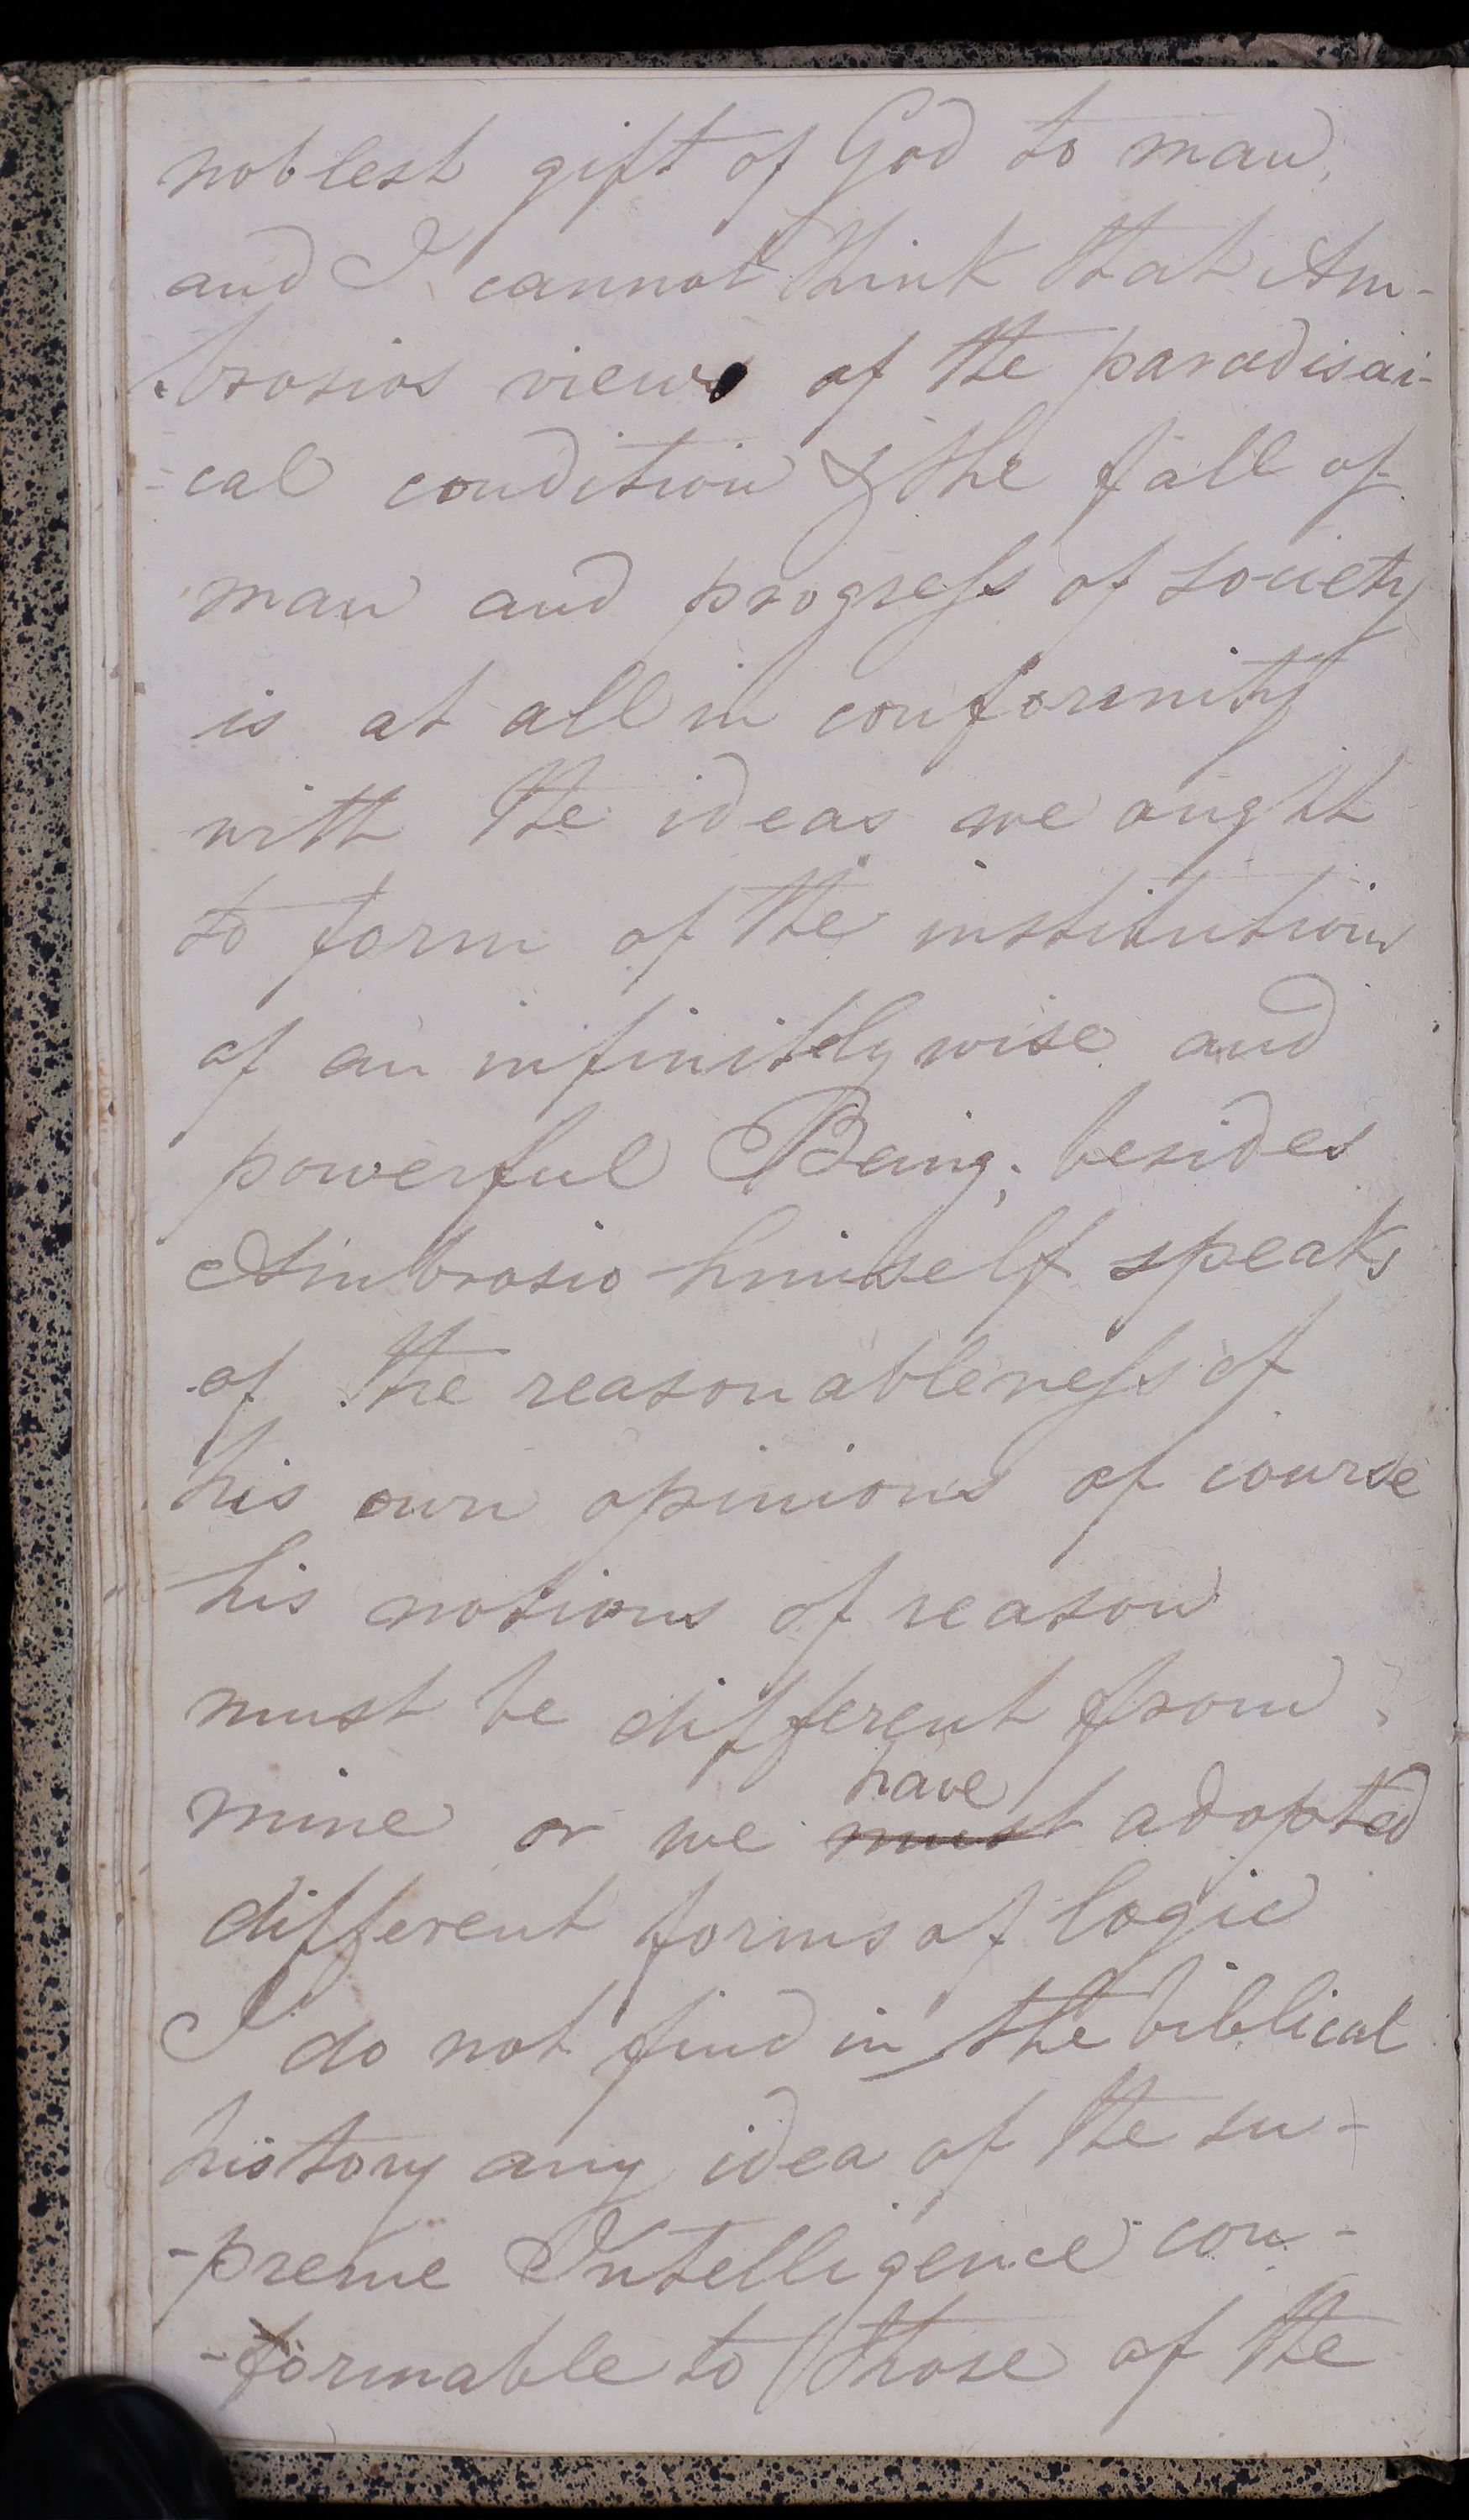 noblest gift of God to man,
and I cannot think that Am-
-brosios views of the paradisai-
-cal condition & the fall of
man and progress of society
is at all in conformity
with the ideas we ought
to form of the institution
of an infinitely wise and
powerful Being; besides
Ambrosio himself speaks
of the reasonableness of
his own opinions of course
his notions of reason
must be different from
have
mine or we must adopted
different forms of logic
I do not find in the biblical
history any idea of the su-
-preme Intelligence con-
-formable to those of the